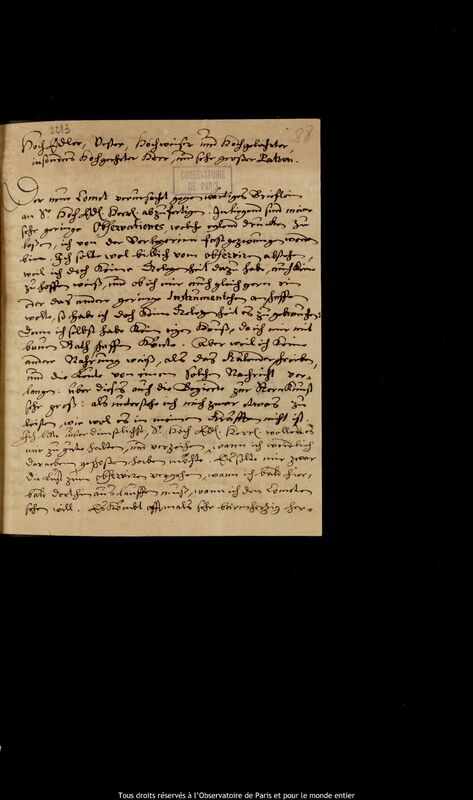 2213
88
Hoch Edler, Vester, Hochweiser und Hochgelehrter,
insonders Hochgeehrter Herr, und sehr grosser Patron.
OBSERVATOIRE
DE PARIS
Der neue Comet verursacht gegenwärtiges Brieflein
an Sr. Hoch Edl. Herrl. abzufertigen. sind meine
sehr geringe Observationes, welche zu
ich von der fast gezwungen worden
bin. Ich solte wol billich vom observiren abstehen,
weil ich doch keine Gelegenheit dazu habe, auch keine
zu hoffen weiß, und ob ich mir auch gleich gern ein
oder das andere geringe Instrumentchen anschaffen
wolte, so habe ich doch keine Gelegenheit es zu gebrauchen:
denn ich selbst habe kein eigen Hauß, da ich mir mit
bauen Rath schaffen könte. Aber weil ich keine
andere Nahrung weiß, als das Kalenderschreiben,
und die Leute von einem solchen Nachricht ver-
langen: über dieses auch die Begierde zur Sternkunst
sehr groß: als unterstehe ich mich zwar etwas zu
leisten, wie wol es in meinen Kräfften nicht ist.
Ich bitte dienstlichst, Sr. Hoch Edl. Herrl. wollen es
mir zu gute halten, und verzeihen, wann ich
darneben gestossen haben möchte. Es solte mir zwar
die Lust zum observiren vergehen, wann ich bald hier,
bald dorthinaus lauffen muß, wann ich den Cometen
sehen will. Es kömbt offtmals sehr her-
Tous droits réservés à l'Observatoire de Paris et pour le monde entier